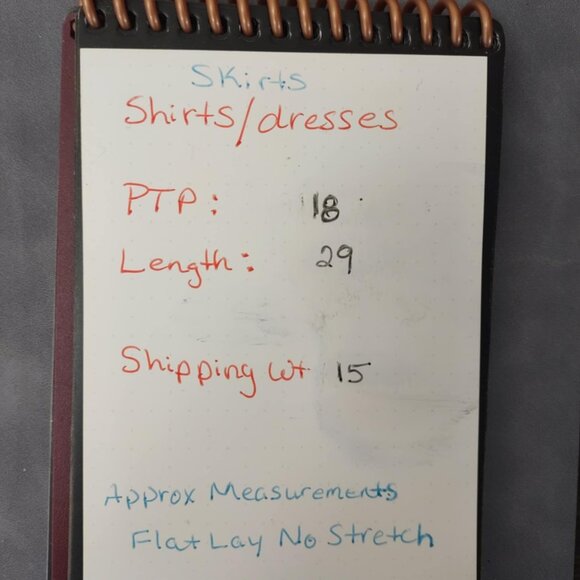 Skirts
Shirts/dresses
PTP: 18
Length: 29
Shipping Wt 15
Approx Measurements
Flat Lay No Stretch